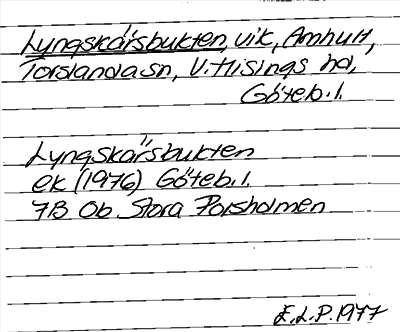 Lyngskärsbukten, vik, Amhult,
Torslanda sn, V. Hisings hd,
Göteb. l.
Lyngskärsbukten
ek (1976) Göteb. l.
7B Ob Stora Porsholmen
E.L.P. 1977